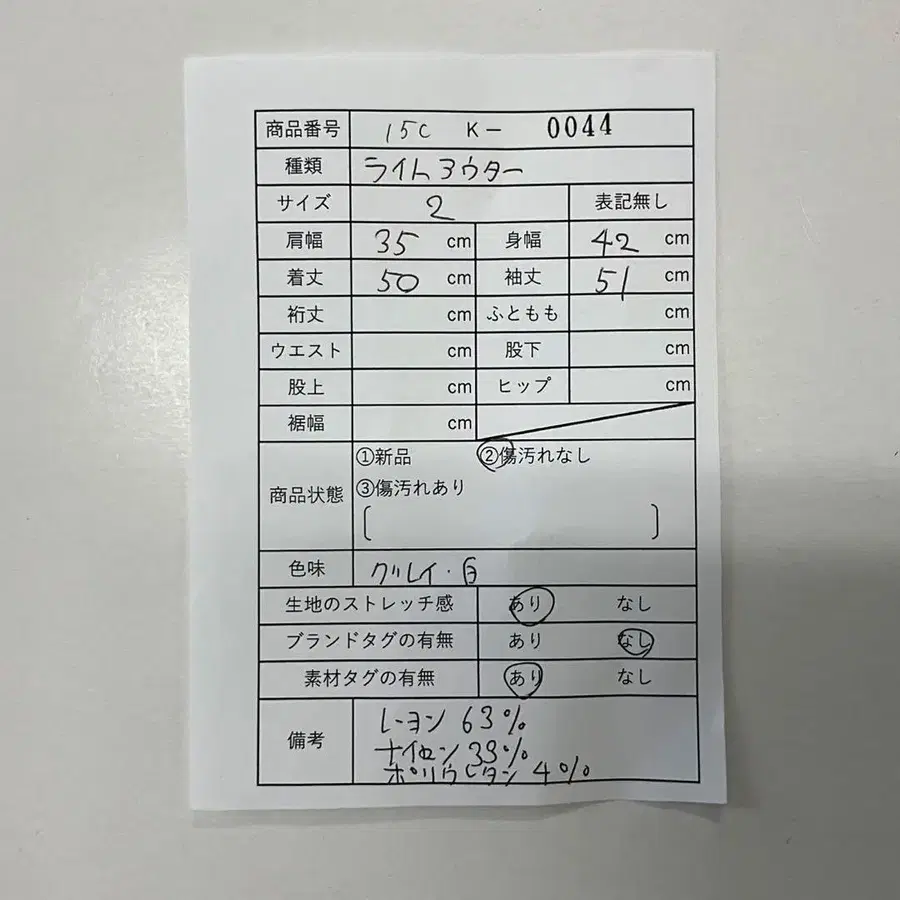 商品番号 15C K- 0044
種類 ライトアウター
サイズ 2 表記無し
肩幅 35 cm 身幅 42 cm
着丈 50 cm 袖丈 51 cm
裄丈 cm ふともも cm
ウエスト cm 股下 cm
股上 cm ヒップ cm
裾幅 cm
商品状態 ①新品 ②傷汚れなし
③傷汚れあり
[ ]
色味 グレイ・白
生地のストレッチ感 あり なし
ブランドタグの有無 あり なし
素材タグの有無 あり なし
備考 レーヨン 63%
ナイロン 33%
ポリウレタン 4%